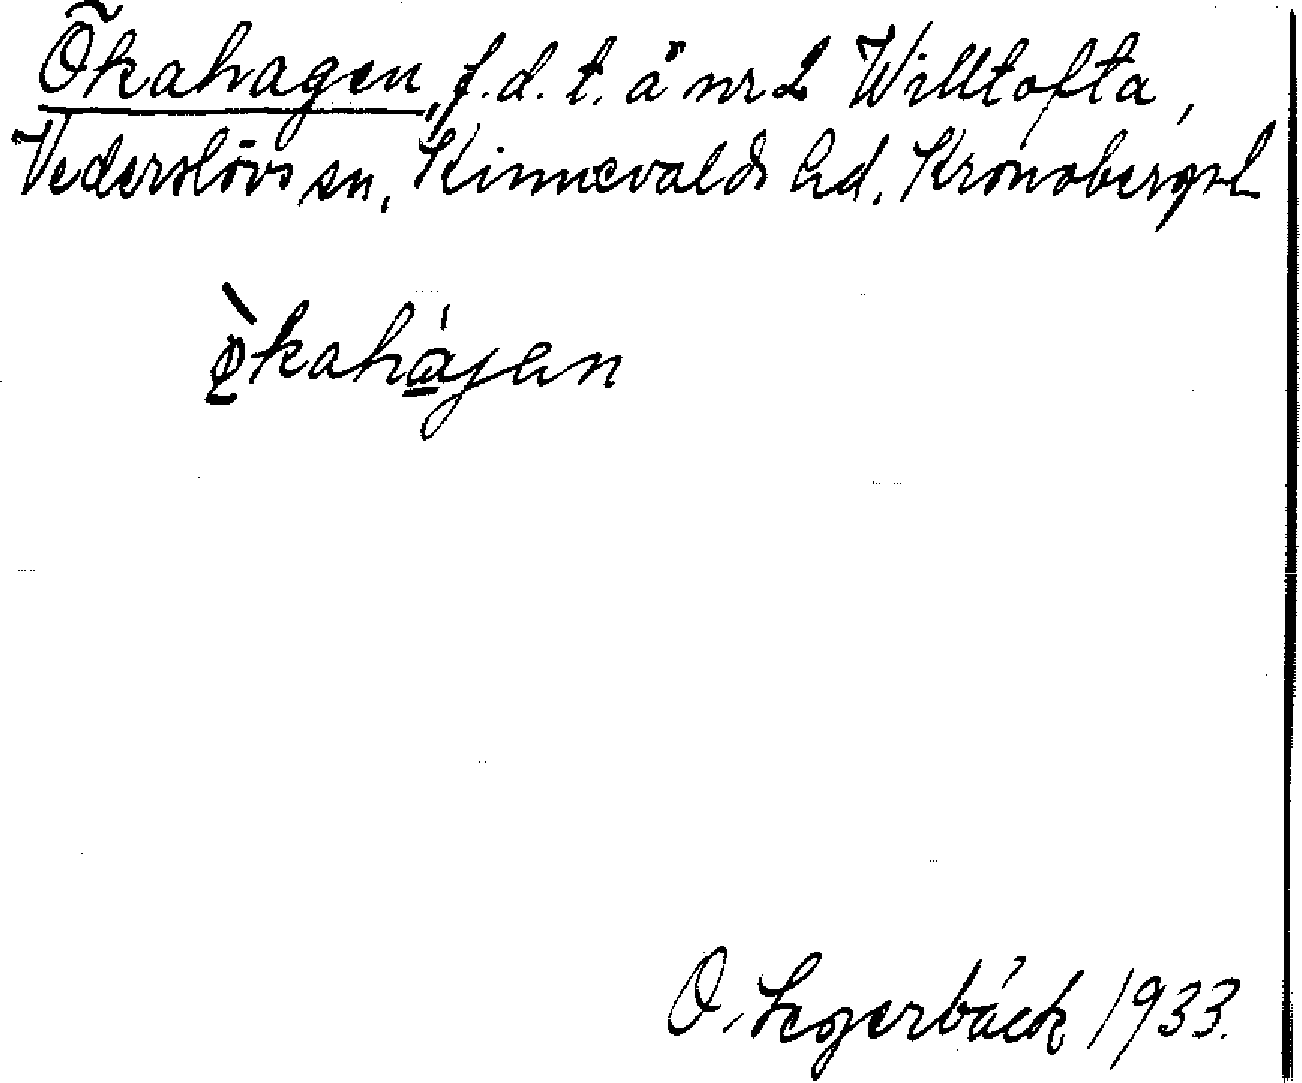 Ökahagen, f.d.t. å nr 2 Willtofta,
Vederslövs sn, Kinnevalds hd. Kronobergs l
ø̀kahágen
O. Segerbäck 1933.